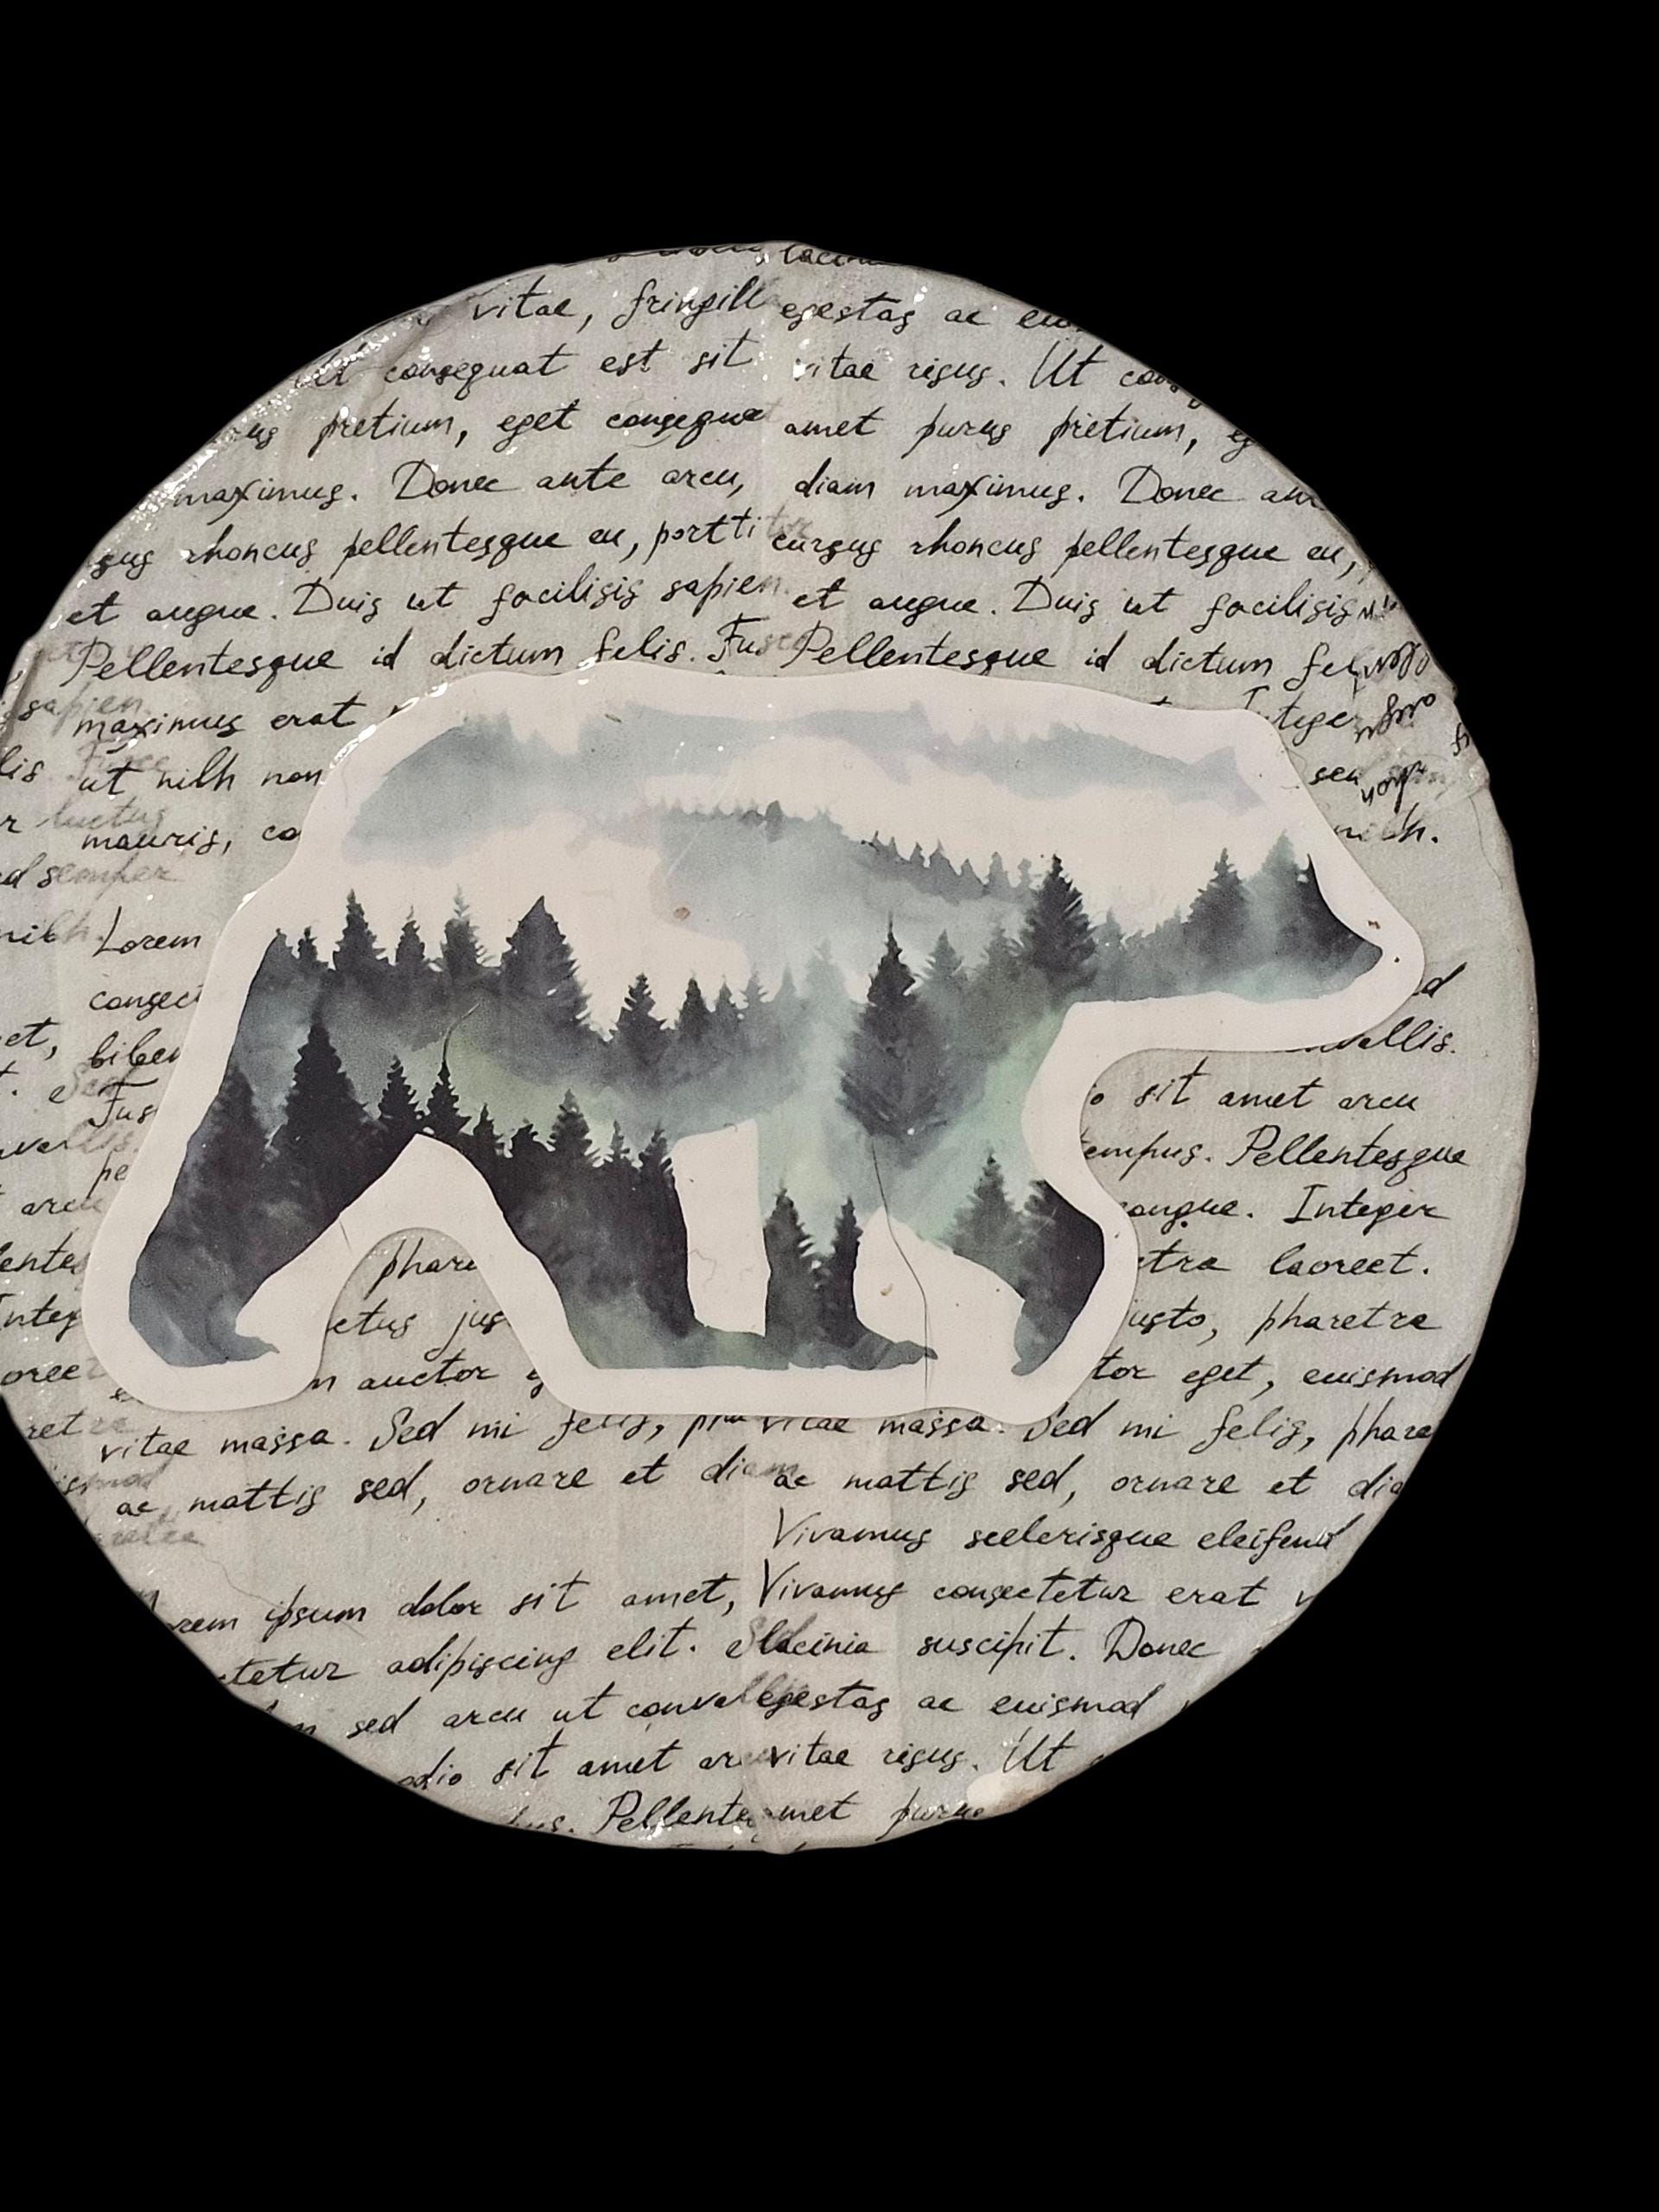 vitae, fringill egestas ac
consequat est sit vitae risus. Ut
pretium, eget consequa amet purus pretium,
maximus. Donec ante arcu, diam maximus. Donec
rhoncus pellentesque eu, portti cursus rhoncus pellentesque eu,
et augue. Duis ut facilisis sapien et augue. Duis ut facilisis
Pellentesque id dictum felis. Fusce Pellentesque id dictum
sapien maximus erat Integer
ut nibh non sen
luctus mauris, co nibh.
semper
nibh Lorem
consect
et, biben ellis.
Fus o sit amet arcu
pe empus. Pellentesque
arcu congue. Integer
phare etra laoreet.
Integ ctus jus justo, pharetra
oreet m auctor tor eget, euismod
vitae massa. Sed mi felis, pha vitae massa. Sed mi felis, phare
ac mattis sed, ornare et diam ac mattis sed, ornare et dia
Vivamus scelerisque eleifend
rem ipsum dolor sit amet, Vivamus consectetur erat v
ctetur adipiscing elit. lacinia suscipit. Donec
sed arcu ut conval egestas ac euismod
odio sit amet ar vitae risus. Ut
Pellente met purus